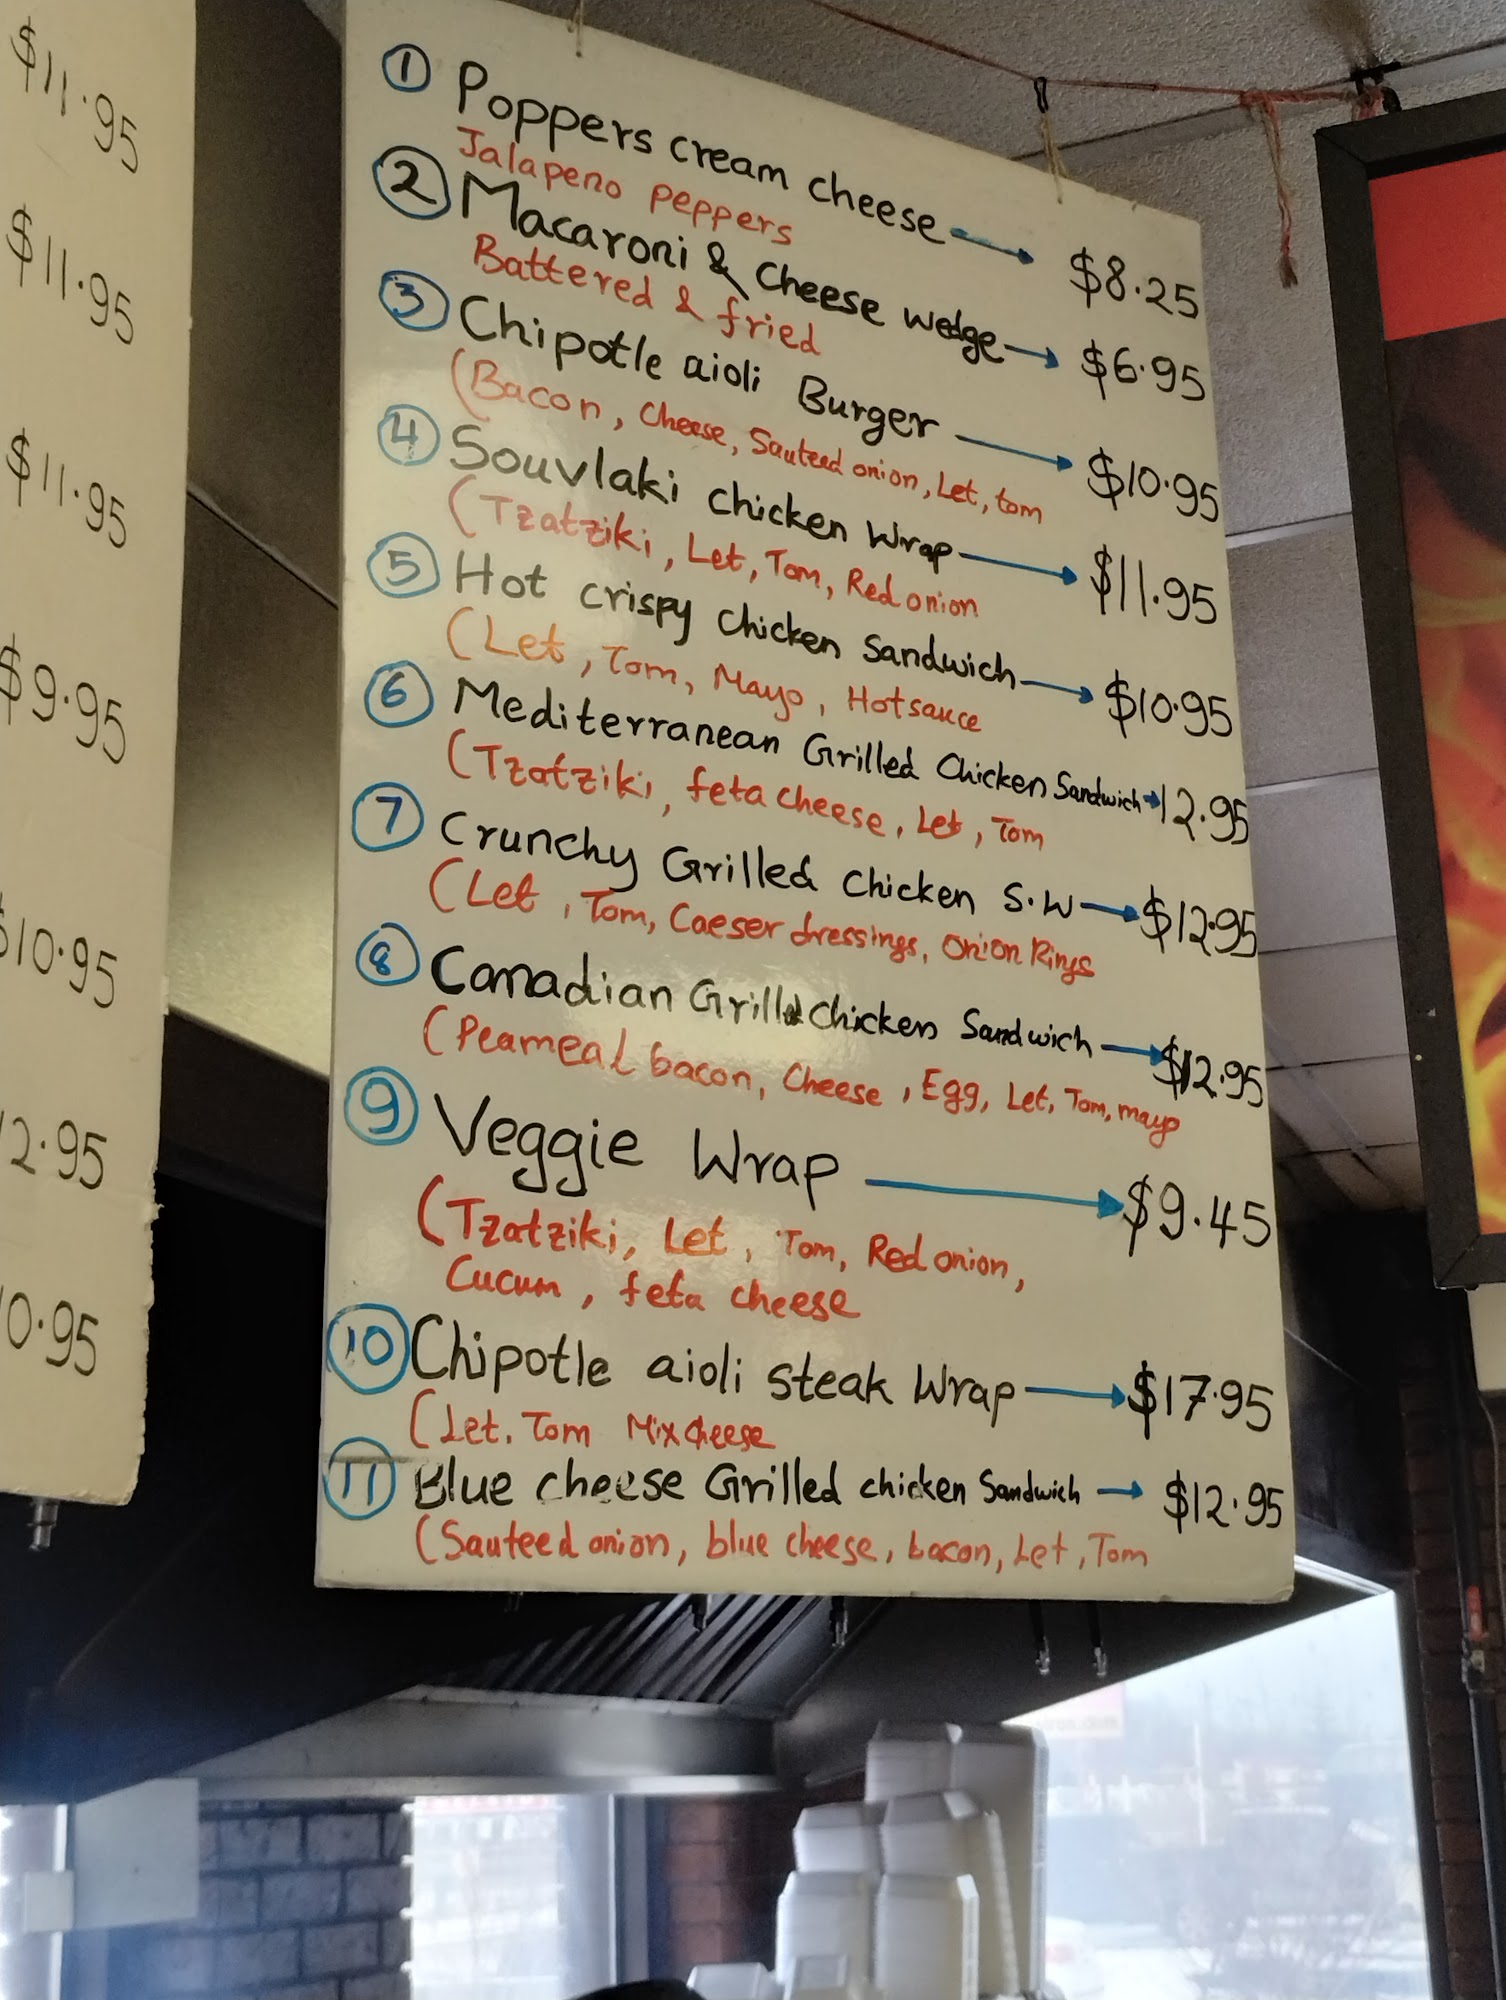 $11.95
$11.95
$11.95
$9.95
$10.95
12.95
0.95
① Poppers cream cheese → $8.25
Jalapeno peppers
② Macaroni & Cheese wedge → $6.95
Battered & fried
③ Chipotle aioli Burger → $10.95
(Bacon, Cheese, Sauteed onion, Let, tom
④ Souvlaki chicken Wrap → $11.95
(Tzatziki, Let, Tom, Red onion
⑤ Hot crispy chicken Sandwich → $10.95
(Let, Tom, Mayo, Hotsauce
⑥ Mediterranean Grilled Chicken Sandwich → 12.95
(Tzatziki, feta cheese, Let, Tom
⑦ Crunchy Grilled chicken S.W → $12.95
(Let, Tom, Caeser dressings, Onion Rings
⑧ Canadian Grilled chicken Sandwich → $12.95
(Peameal bacon, Cheese, Egg, Let, Tom, mayo
⑨ Veggie Wrap → $9.45
(Tzatziki, Let, Tom, Red onion,
Cucum, feta cheese
⑩ Chipotle aioli steak Wrap → $17.95
(Let. Tom Mix cheese
⑪ Blue cheese Grilled chicken Sandwich → $12.95
(Sauteed onion, blue cheese, bacon, Let, Tom